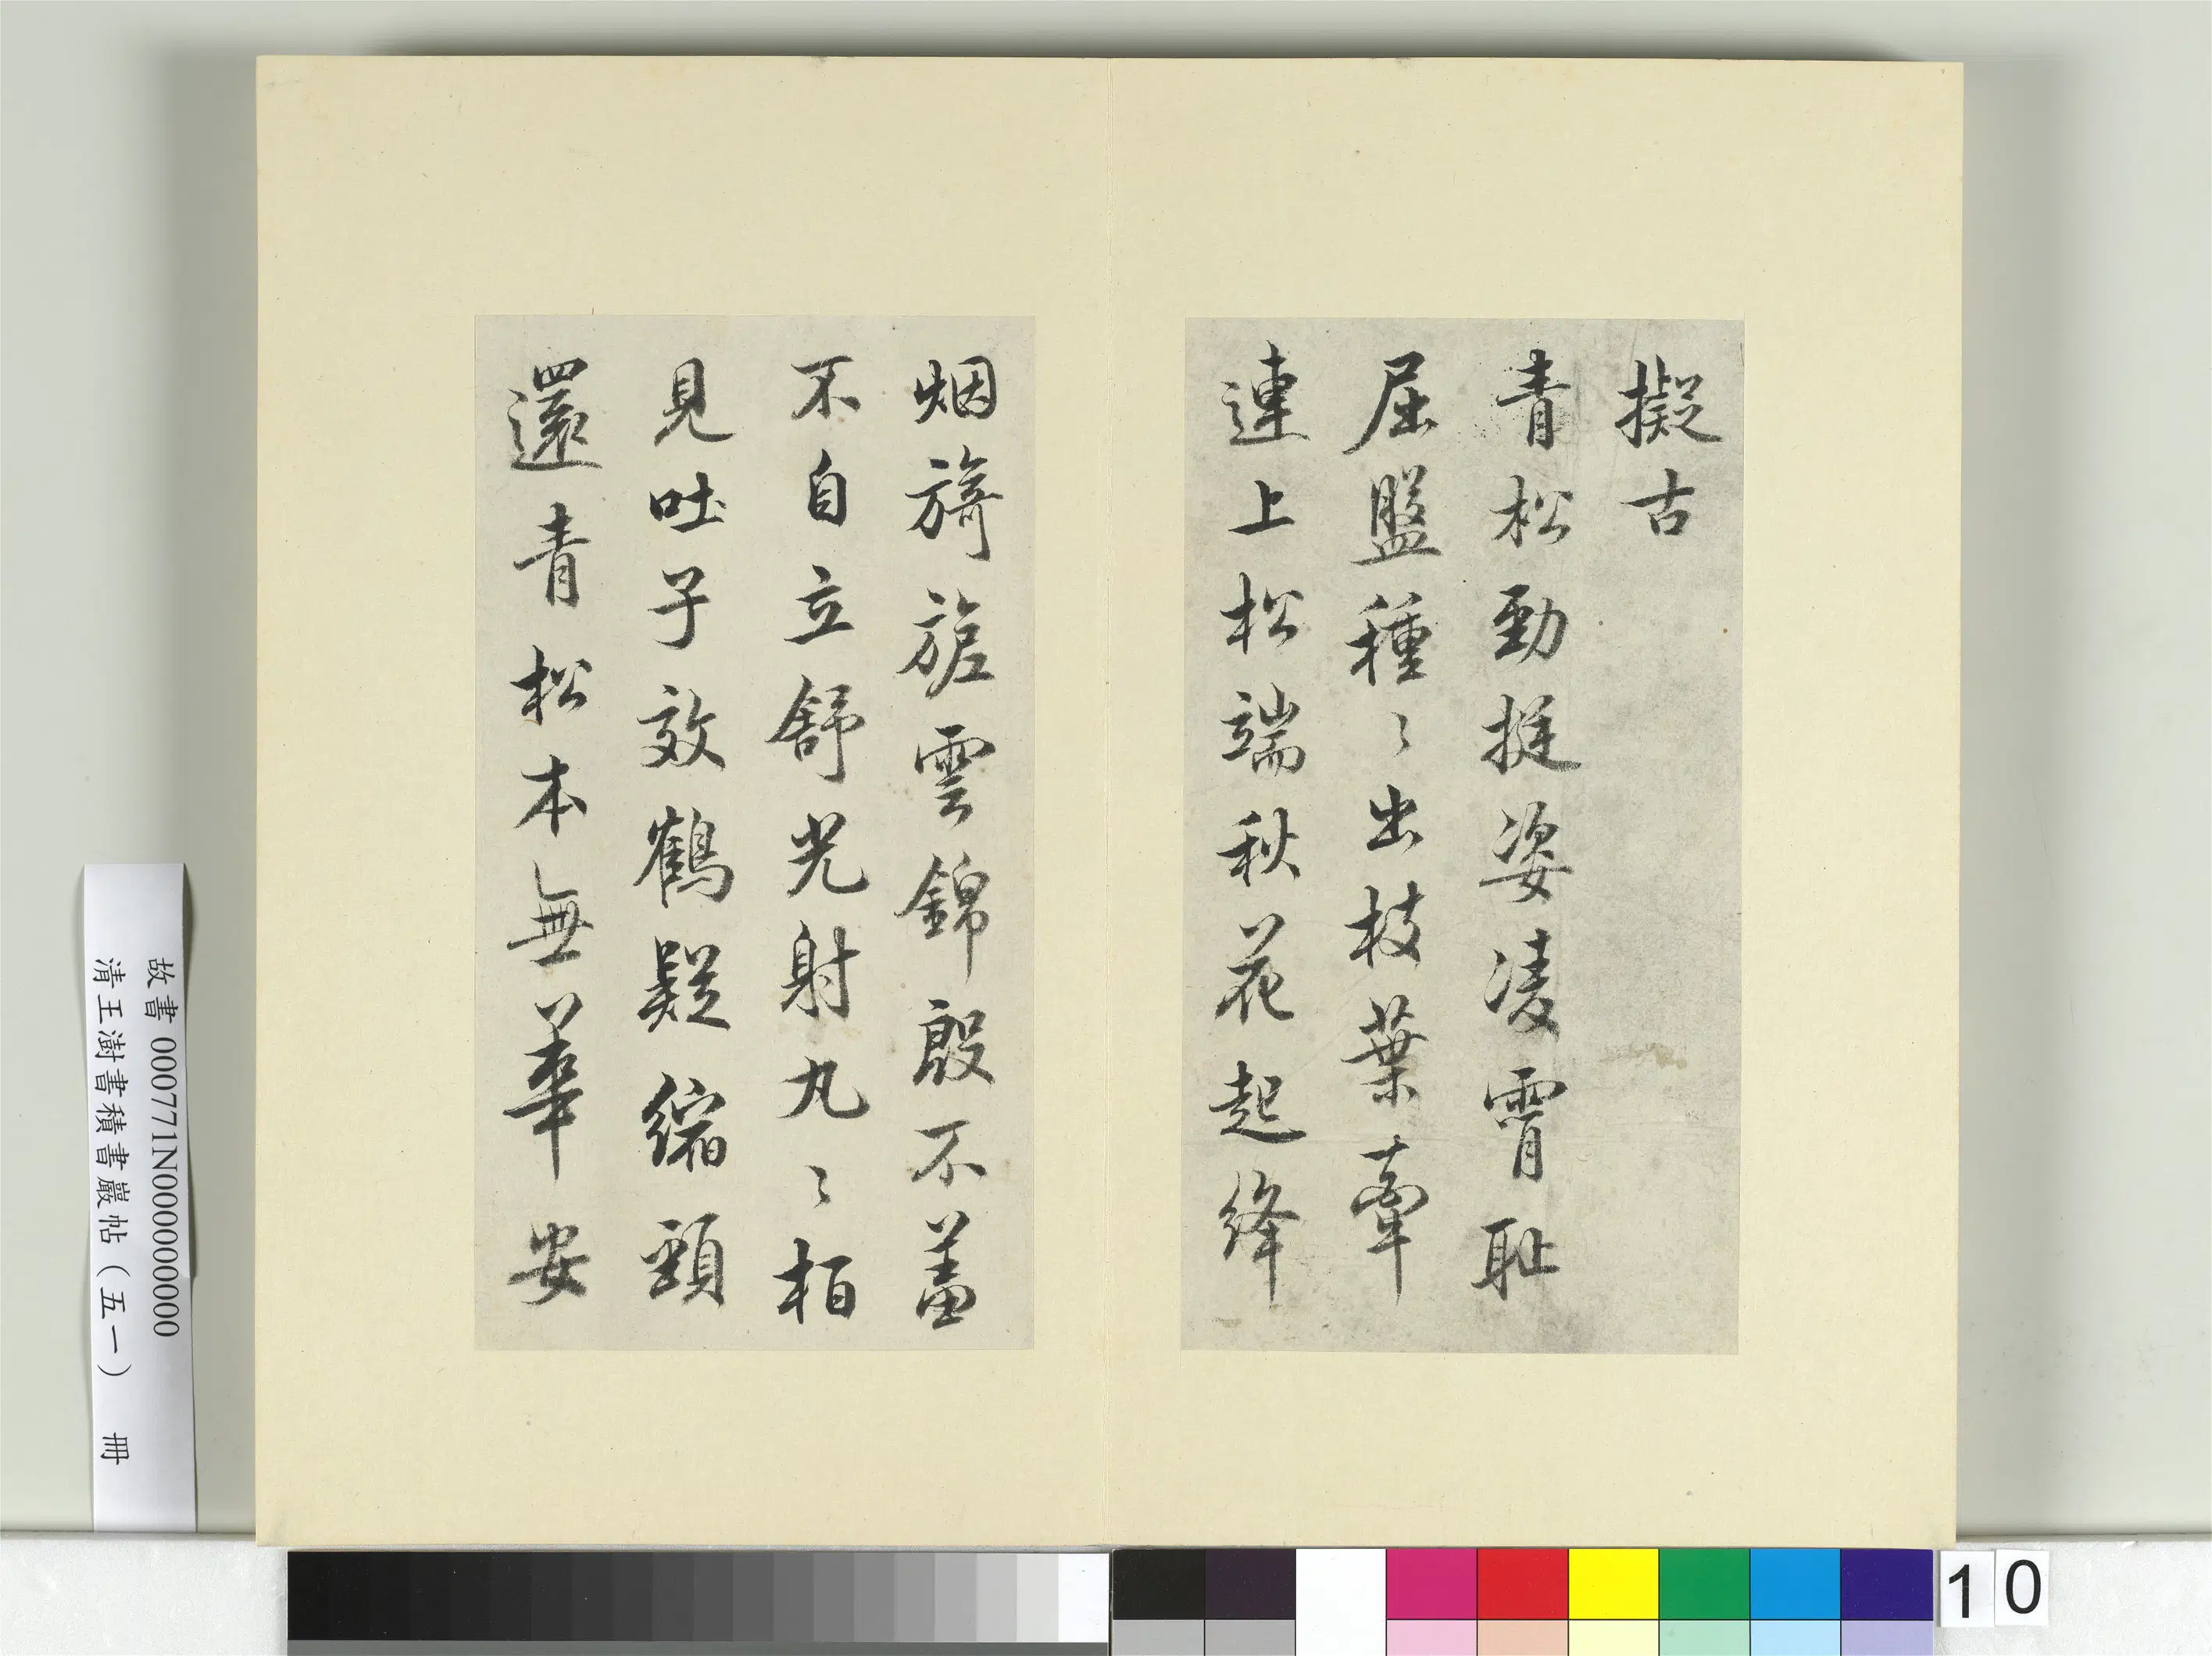 擬古
青松勁挺姿凌霄恥
屈盤種〻出枝葉牽
連上松端秋花起絳
烟旖旎雲錦殷不羞
不自立舒光射丸〻柏
見吐子效鶴疑縮頸
還青松本無華安
故書 000771N000000000
清王澍書積書巖帖（五一） 冊
10